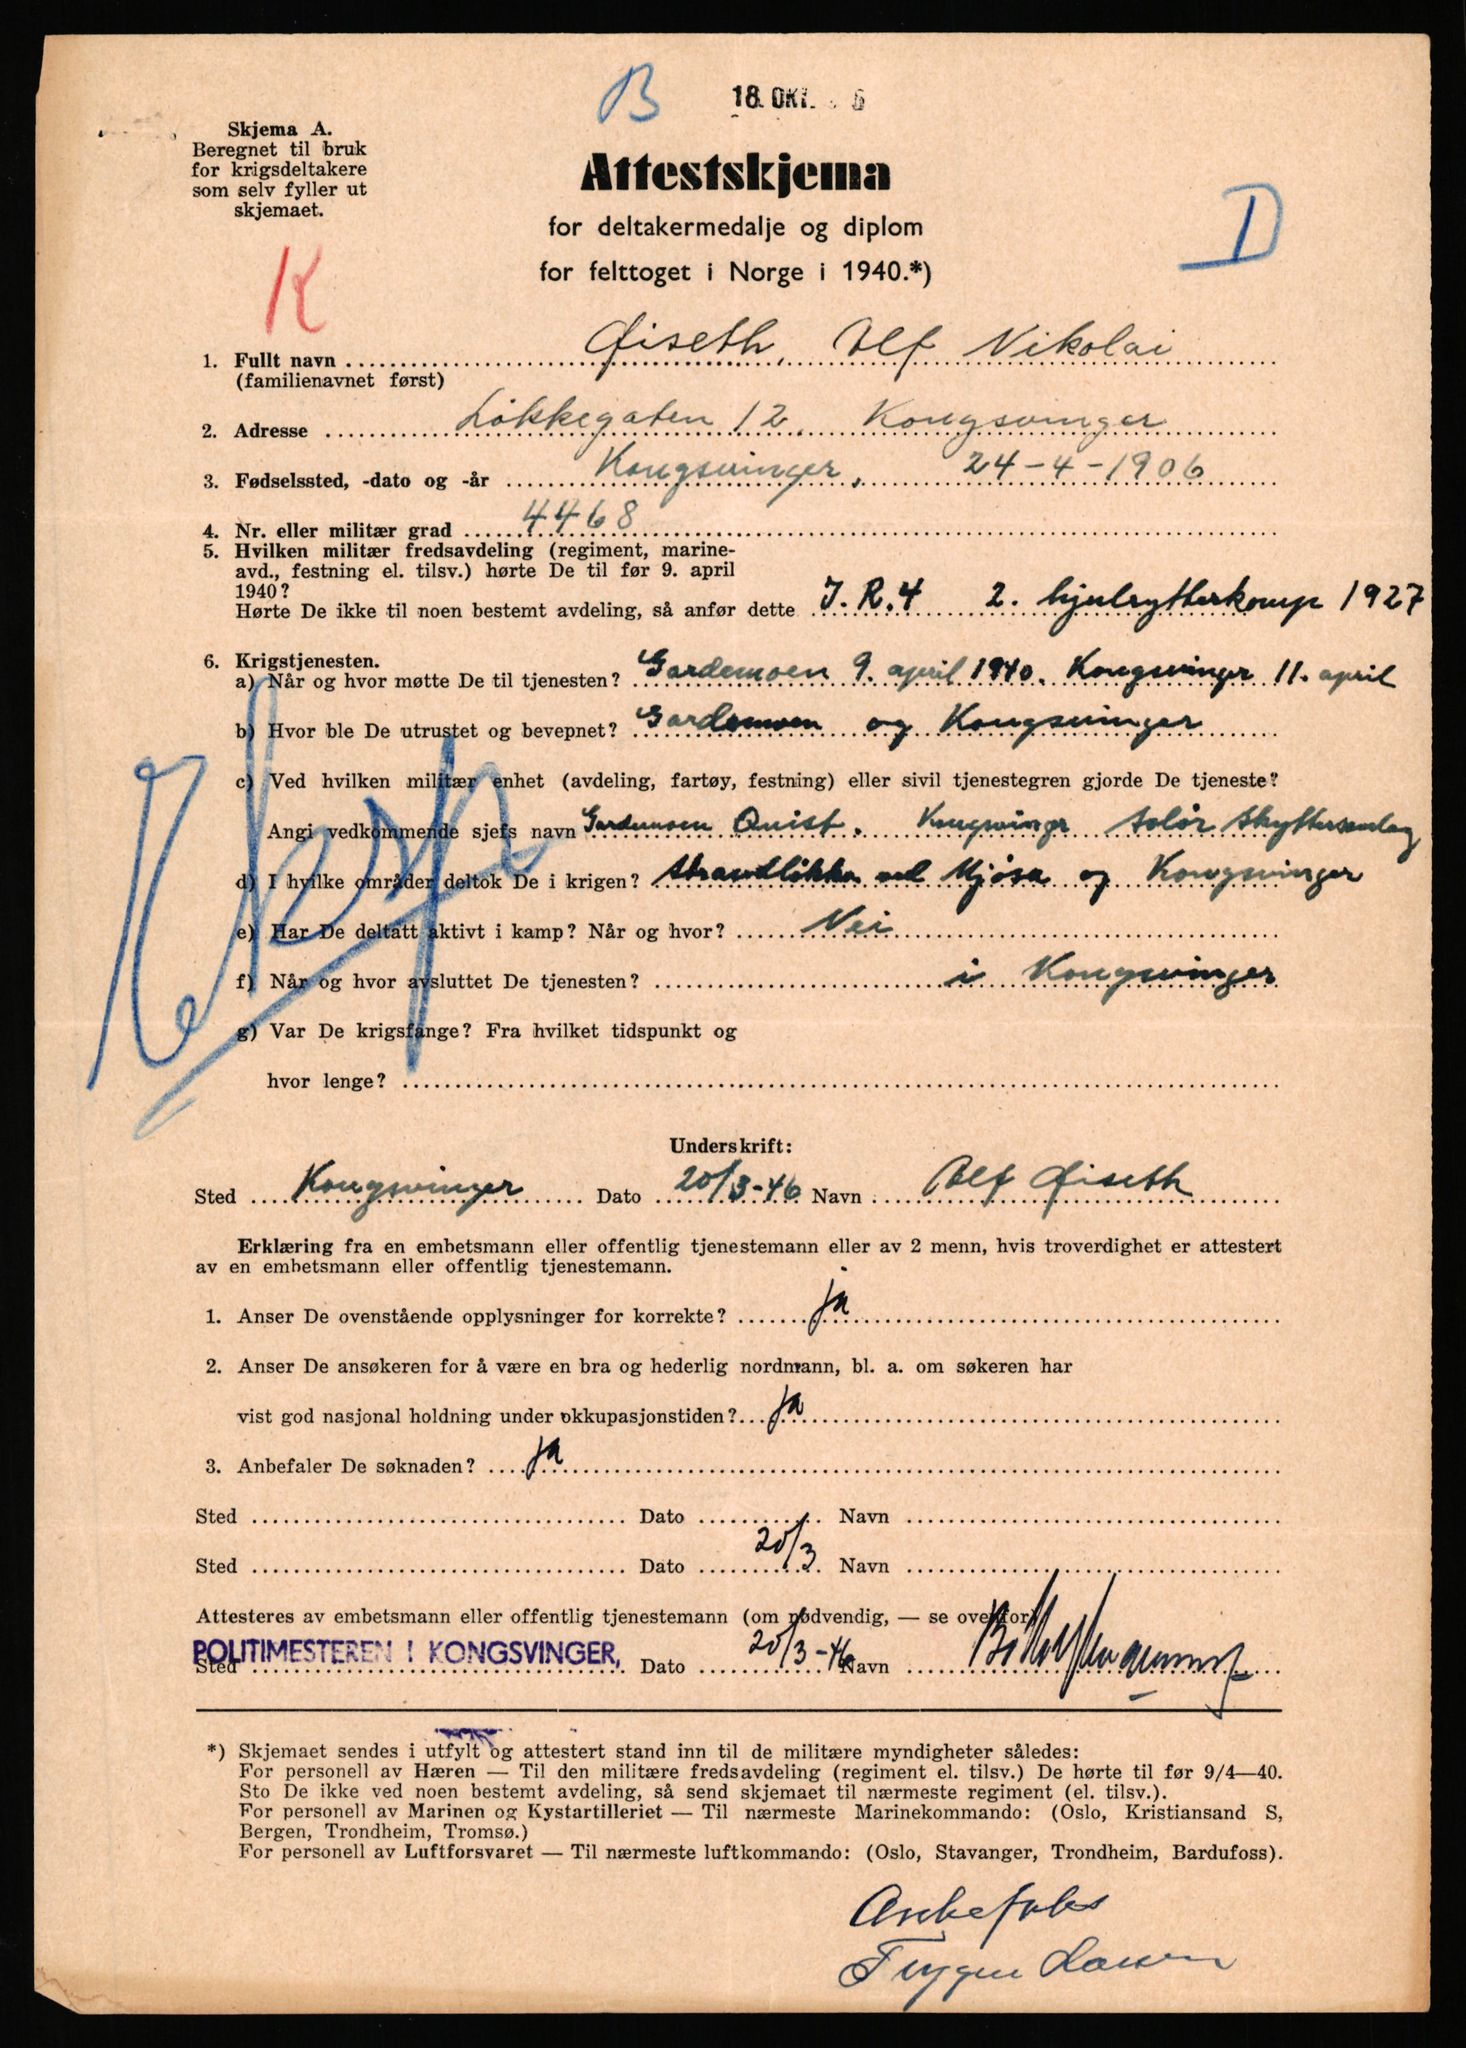 B
18. OKT.
Skjema A.
Beregnet til bruk
for krigsdeltakere
som selv fyller ut
skjemaet.
Attestskjema
for deltakermedalje og diplom
for felttoget i Norge i 1940.*)
D
K
1. Fullt navn Øiseth, Alf Nikolai
(familienavnet først)
2. Adresse Løkkegaten 12, Kongsvinger
3. Fødselssted, -dato og -år Kongsvinger, 24-4-1906
4. Nr. eller militær grad 4468
5. Hvilken militær fredsavdeling (regiment, marine-
avd., festning el. tilsv.) hørte De til før 9. april
1940?
Hørte De ikke til noen bestemt avdeling, så anfør dette I.R.4 2. hjulrytterkomp 1927
6. Krigstjenesten.
a) Når og hvor møtte De til tjenesten? Gardemoen 9. april 1940. Kongsvinger 11. april
b) Hvor ble De utrustet og bevepnet? Gardemoen og Kongsvinger
c) Ved hvilken militær enhet (avdeling, fartøy, festning) eller sivil tjenestegren gjorde De tjeneste?
Angi vedkommende sjefs navn Gardemoen Quist. Kongsvinger Solør Skyttersamlag
d) I hvilke områder deltok De i krigen? Strandløkka ved Mjøsa og Kongsvinger
e) Har De deltatt aktivt i kamp? Når og hvor? Nei
f) Når og hvor avsluttet De tjenesten? i Kongsvinger
g) Var De krigsfange? Fra hvilket tidspunkt og
hvor lenge?
Underskrift:
Sted Kongsvinger Dato 20/3-46 Navn Alf Øiseth
Erklæring fra en embetsmann eller offentlig tjenestemann eller av 2 menn, hvis troverdighet er attestert
av en embetsmann eller offentlig tjenestemann.
1. Anser De ovenstående opplysninger for korrekte? ja
2. Anser De ansøkeren for å være en bra og hederlig nordmann, bl. a. om søkeren har
vist god nasjonal holdning under okkupasjonstiden? ja
3. Anbefaler De søknaden? ja
Sted Dato Navn
Sted Dato 20/3 Navn
Attesteres av embetsmann eller offentlig tjenestemann (om nødvendig, — se ovenfor)
POLITIMESTEREN I KONGSVINGER,
Sted Dato 20/3-46 Navn
*) Skjemaet sendes i utfylt og attestert stand inn til de militære myndigheter således:
For personell av Hæren — Til den militære fredsavdeling (regiment el. tilsv.) De hørte til før 9/4—40.
Sto De ikke ved noen bestemt avdeling, så send skjemaet til nærmeste regiment (el. tilsv.).
For personell av Marinen og Kystartilleriet — Til nærmeste Marinekommando: (Oslo, Kristiansand S,
Bergen, Trondheim, Tromsø.)
For personell av Luftforsvaret — Til nærmeste luftkommando: (Oslo, Stavanger, Trondheim, Bardufoss).
Anbefales